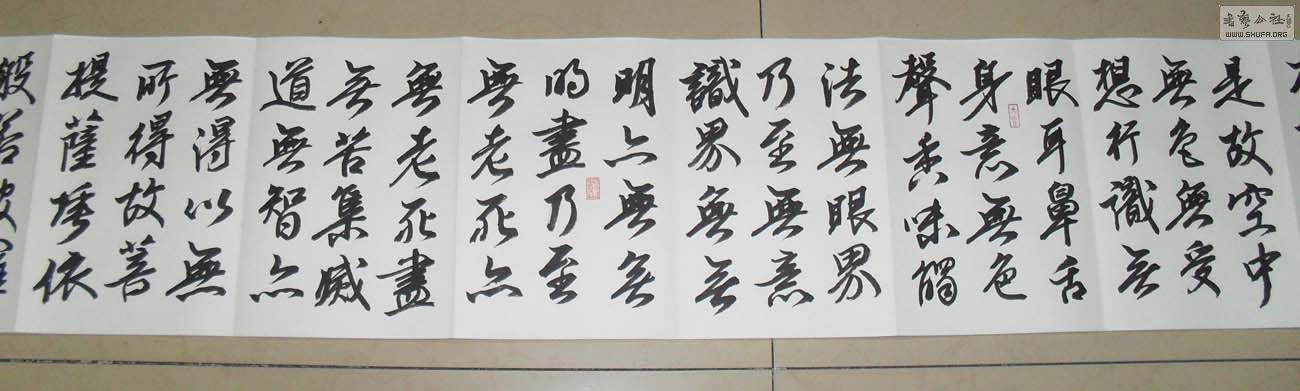 是故空中
無色無受
想行識无
眼耳鼻舌
身意無色
聲香味觸
法無眼界
乃至無意
識界無无
明亦無无
明盡乃至
無老死亦
無老死盡
无苦集滅
道無智亦
無得以無
所得故菩
提薩埵依
般若波羅
书艺公社
WWW.SHUFA.ORG